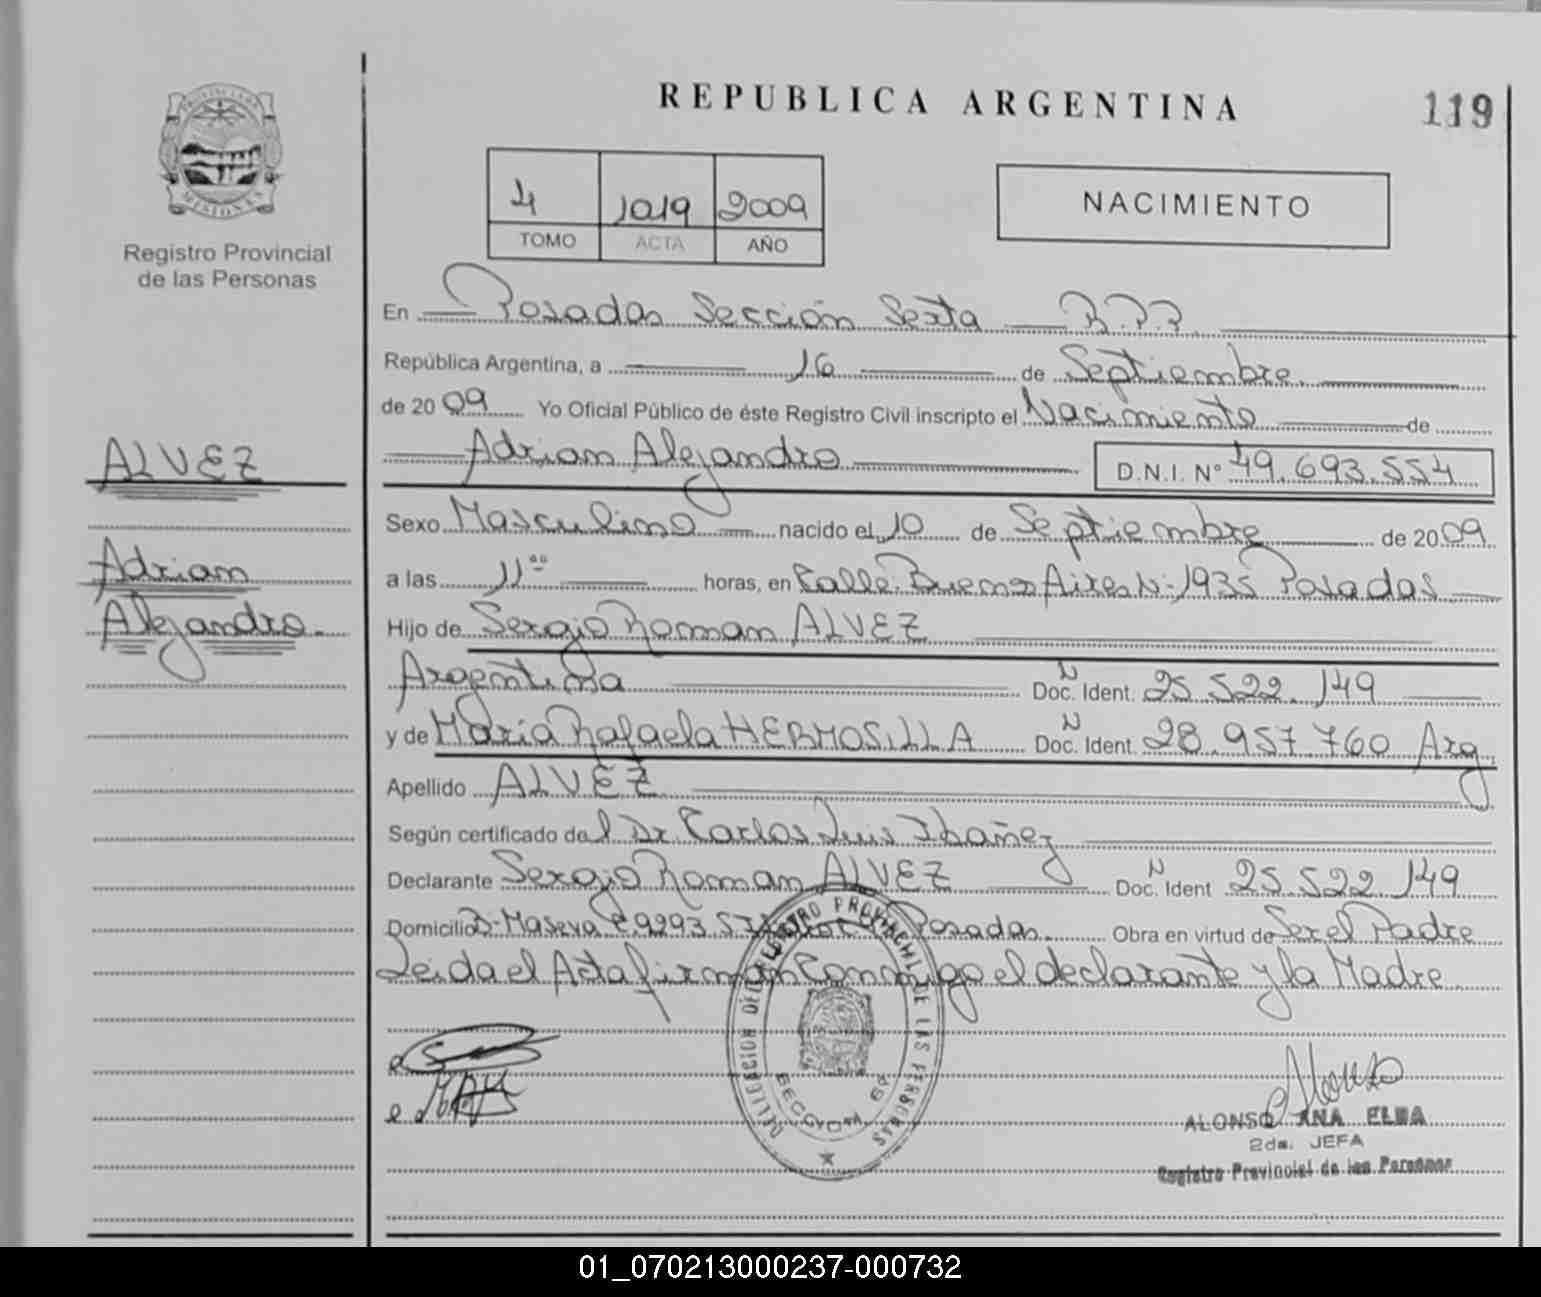 REPUBLICA ARGENTINA
119
PROVINCIA DE MISIONES
Registro Provincial
de las Personas
4 1019 2009
TOMO ACTA AÑO
NACIMIENTO
En Posadas Sección Sexta R.P.P.
República Argentina, a 16 de Septiembre
de 2009 Yo Oficial Público de éste Registro Civil inscripto el Nacimiento de
Adrian Alejandro D.N.I. Nº 49.693.554
ALVEZ
Adrian
Alejandro.
Sexo Masculino nacido el 10 de Septiembre de 2009
a las 11°° horas, en Calle Buenos Aires Nº 1935 Posadas
Hijo de Sergio Roman ALVEZ
Argentina Doc. Ident. N 25.522.149
y de Maria Rafaela HERMOSILLA Doc. Ident. N 28.957.760 Arg
Apellido ALVEZ
Según certificado del Dr. Carlos Luis Ibañez
Declarante Sergio Roman ALVEZ Doc. Ident N 25.522.149
Domicilio Bº Maseva Posadas Obra en virtud de Ser el Padre
Leida el Acta firman Conmigo el declarante y la Madre
DELEGACION DEL REGISTRO PROVINCIAL DE LAS PERSONAS
SECCION 6ª
Alonso
ALONSO ANA ELBA
2da. JEFA
Registro Provincial de las Personas
01_070213000237-000732